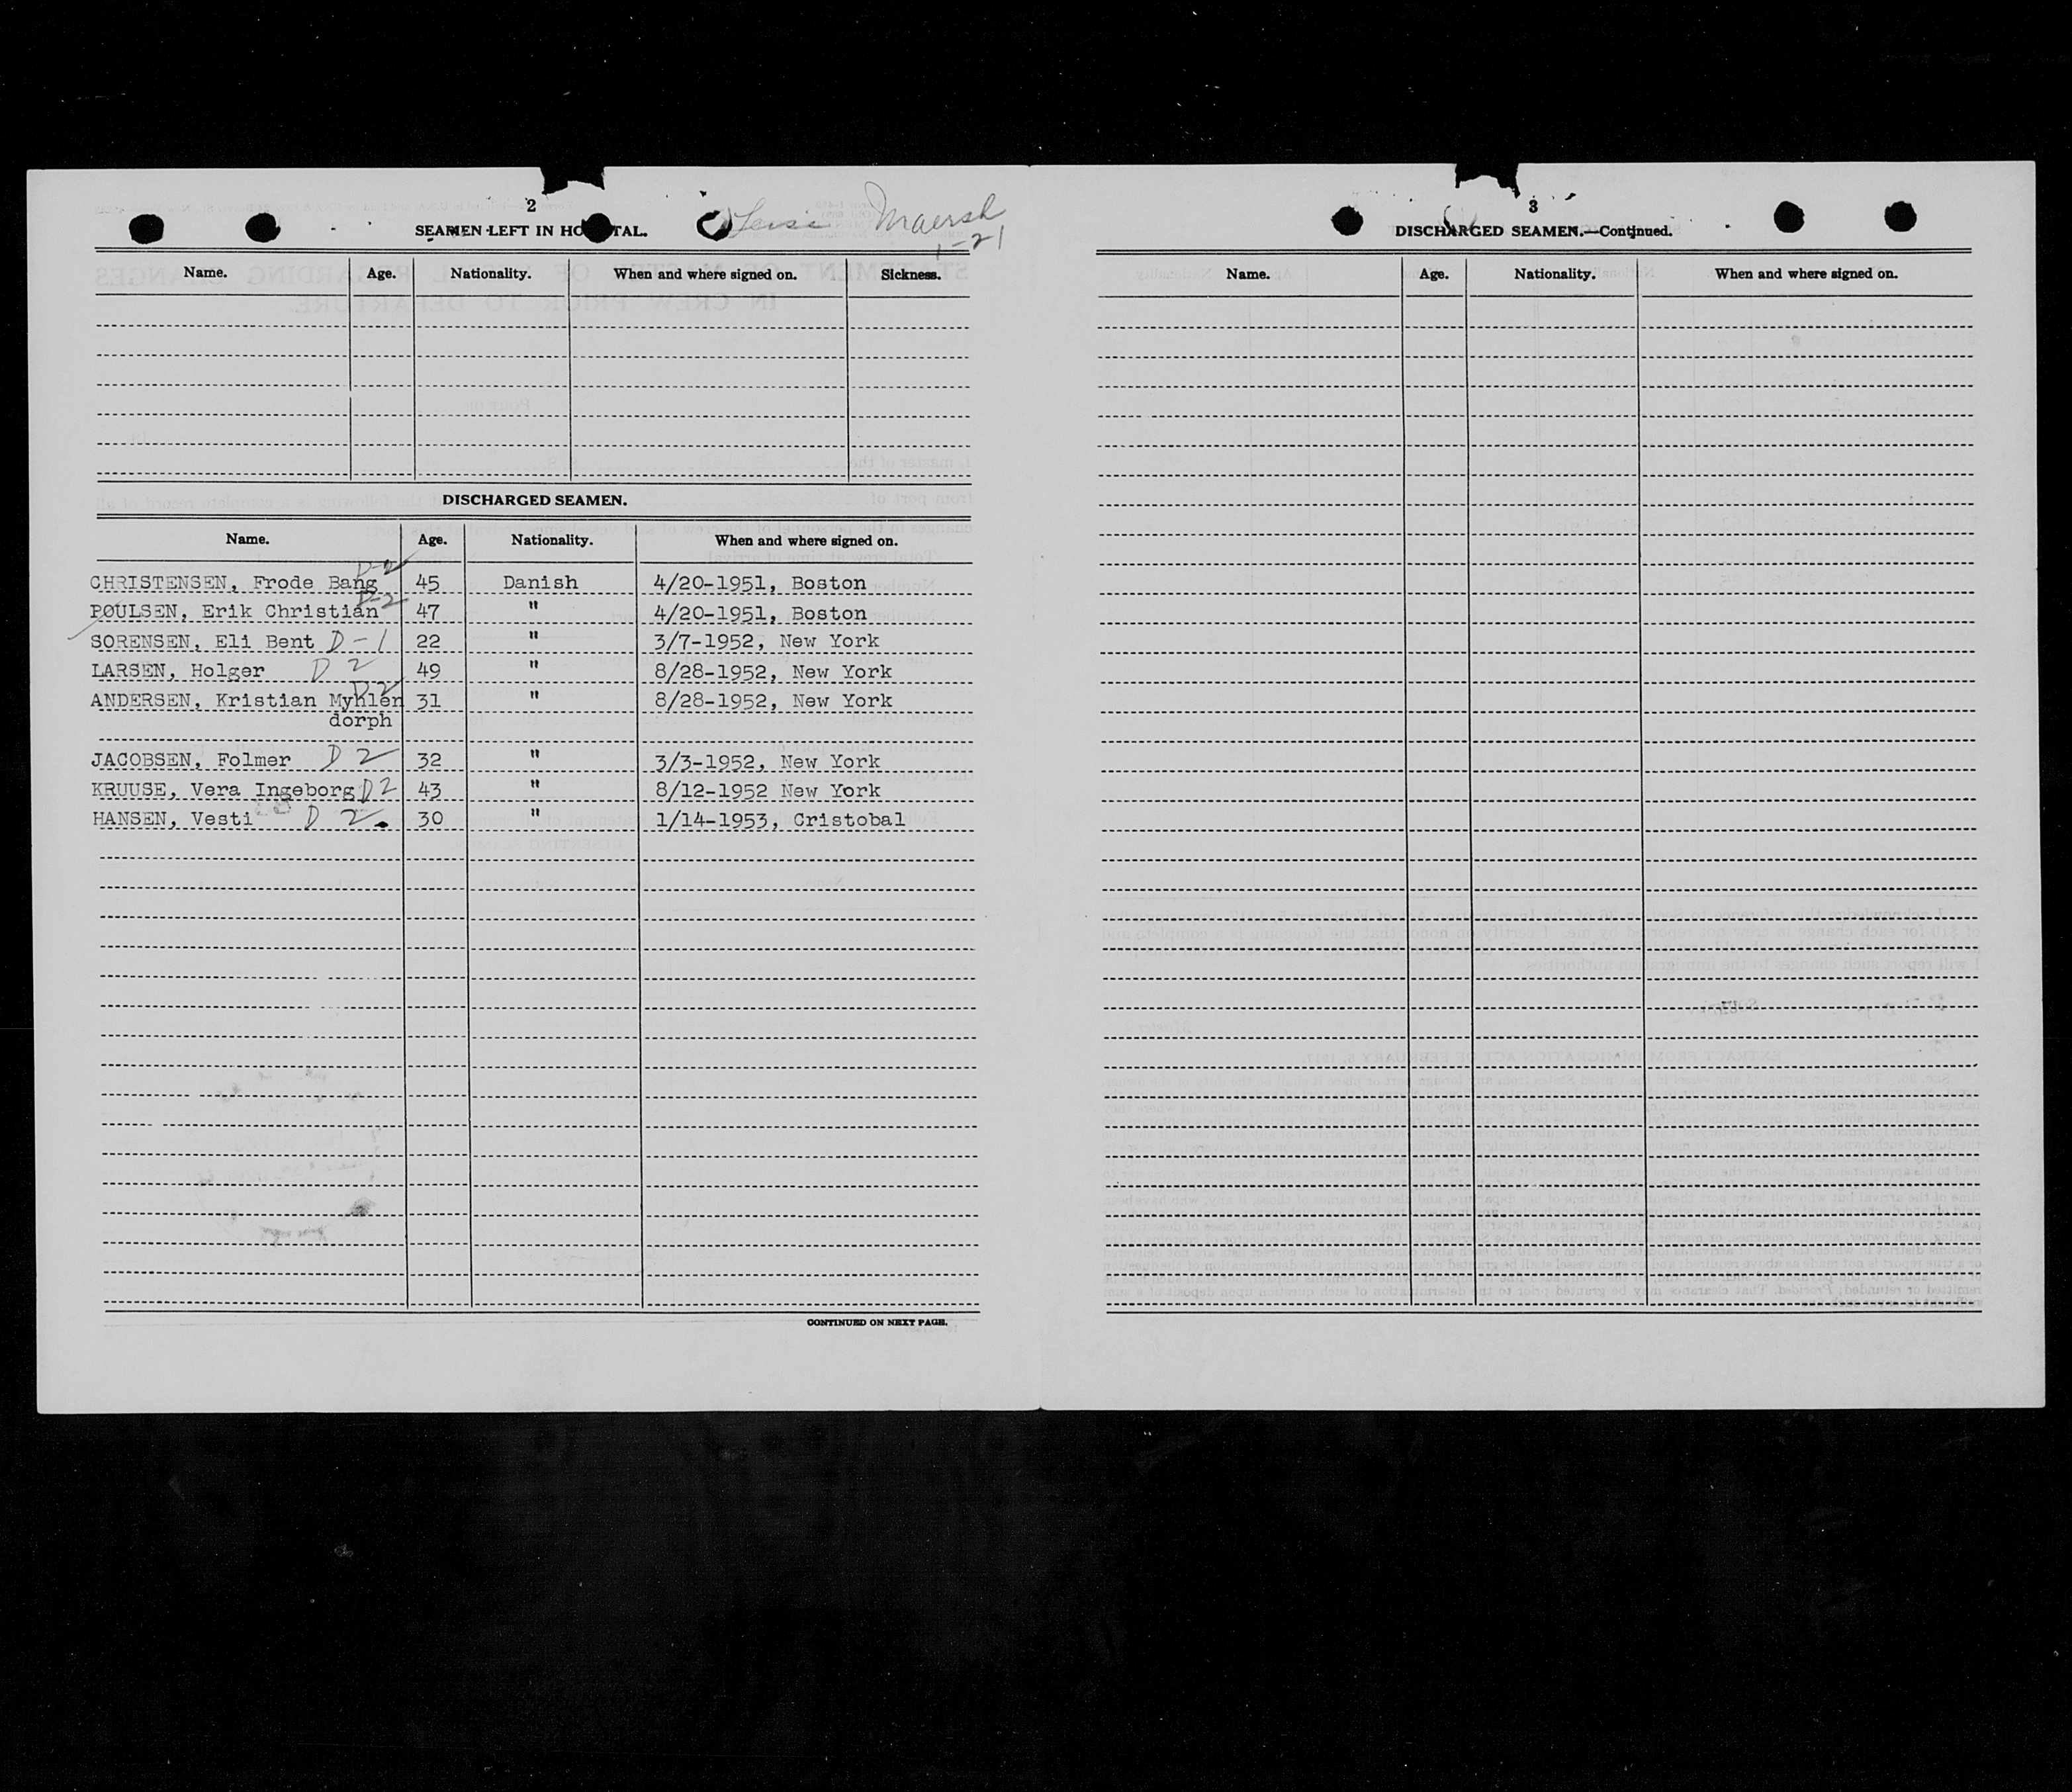 2
SEAMEN LEFT IN HO TAL.
Maersk
1-21
Name. Age. Nationality. When and where signed on. Sickness.
DISCHARGED SEAMEN.
Name. Age. Nationality. When and where signed on.
CHRISTENSEN, Frode Bang D-2 45 Danish 4/20-1951, Boston
POULSEN, Erik Christian D-2 47 " 4/20-1951, Boston
SORENSEN, Eli Bent D-1 22 " 3/7-1952, New York
LARSEN, Holger D 2 49 " 8/28-1952, New York
ANDERSEN, Kristian Myhlen D2 31 " 8/28-1952, New York
dorph
JACOBSEN, Folmer D 2 32 " 3/3-1952, New York
KRUUSE, Vera Ingeborg D2 43 " 8/12-1952 New York
HANSEN, Vesti D 2. 30 " 1/14-1953, Cristobal
CONTINUED ON NEXT PAGE.
3
DISCHARGED SEAMEN.—Continued.
Name. Age. Nationality. When and where signed on.